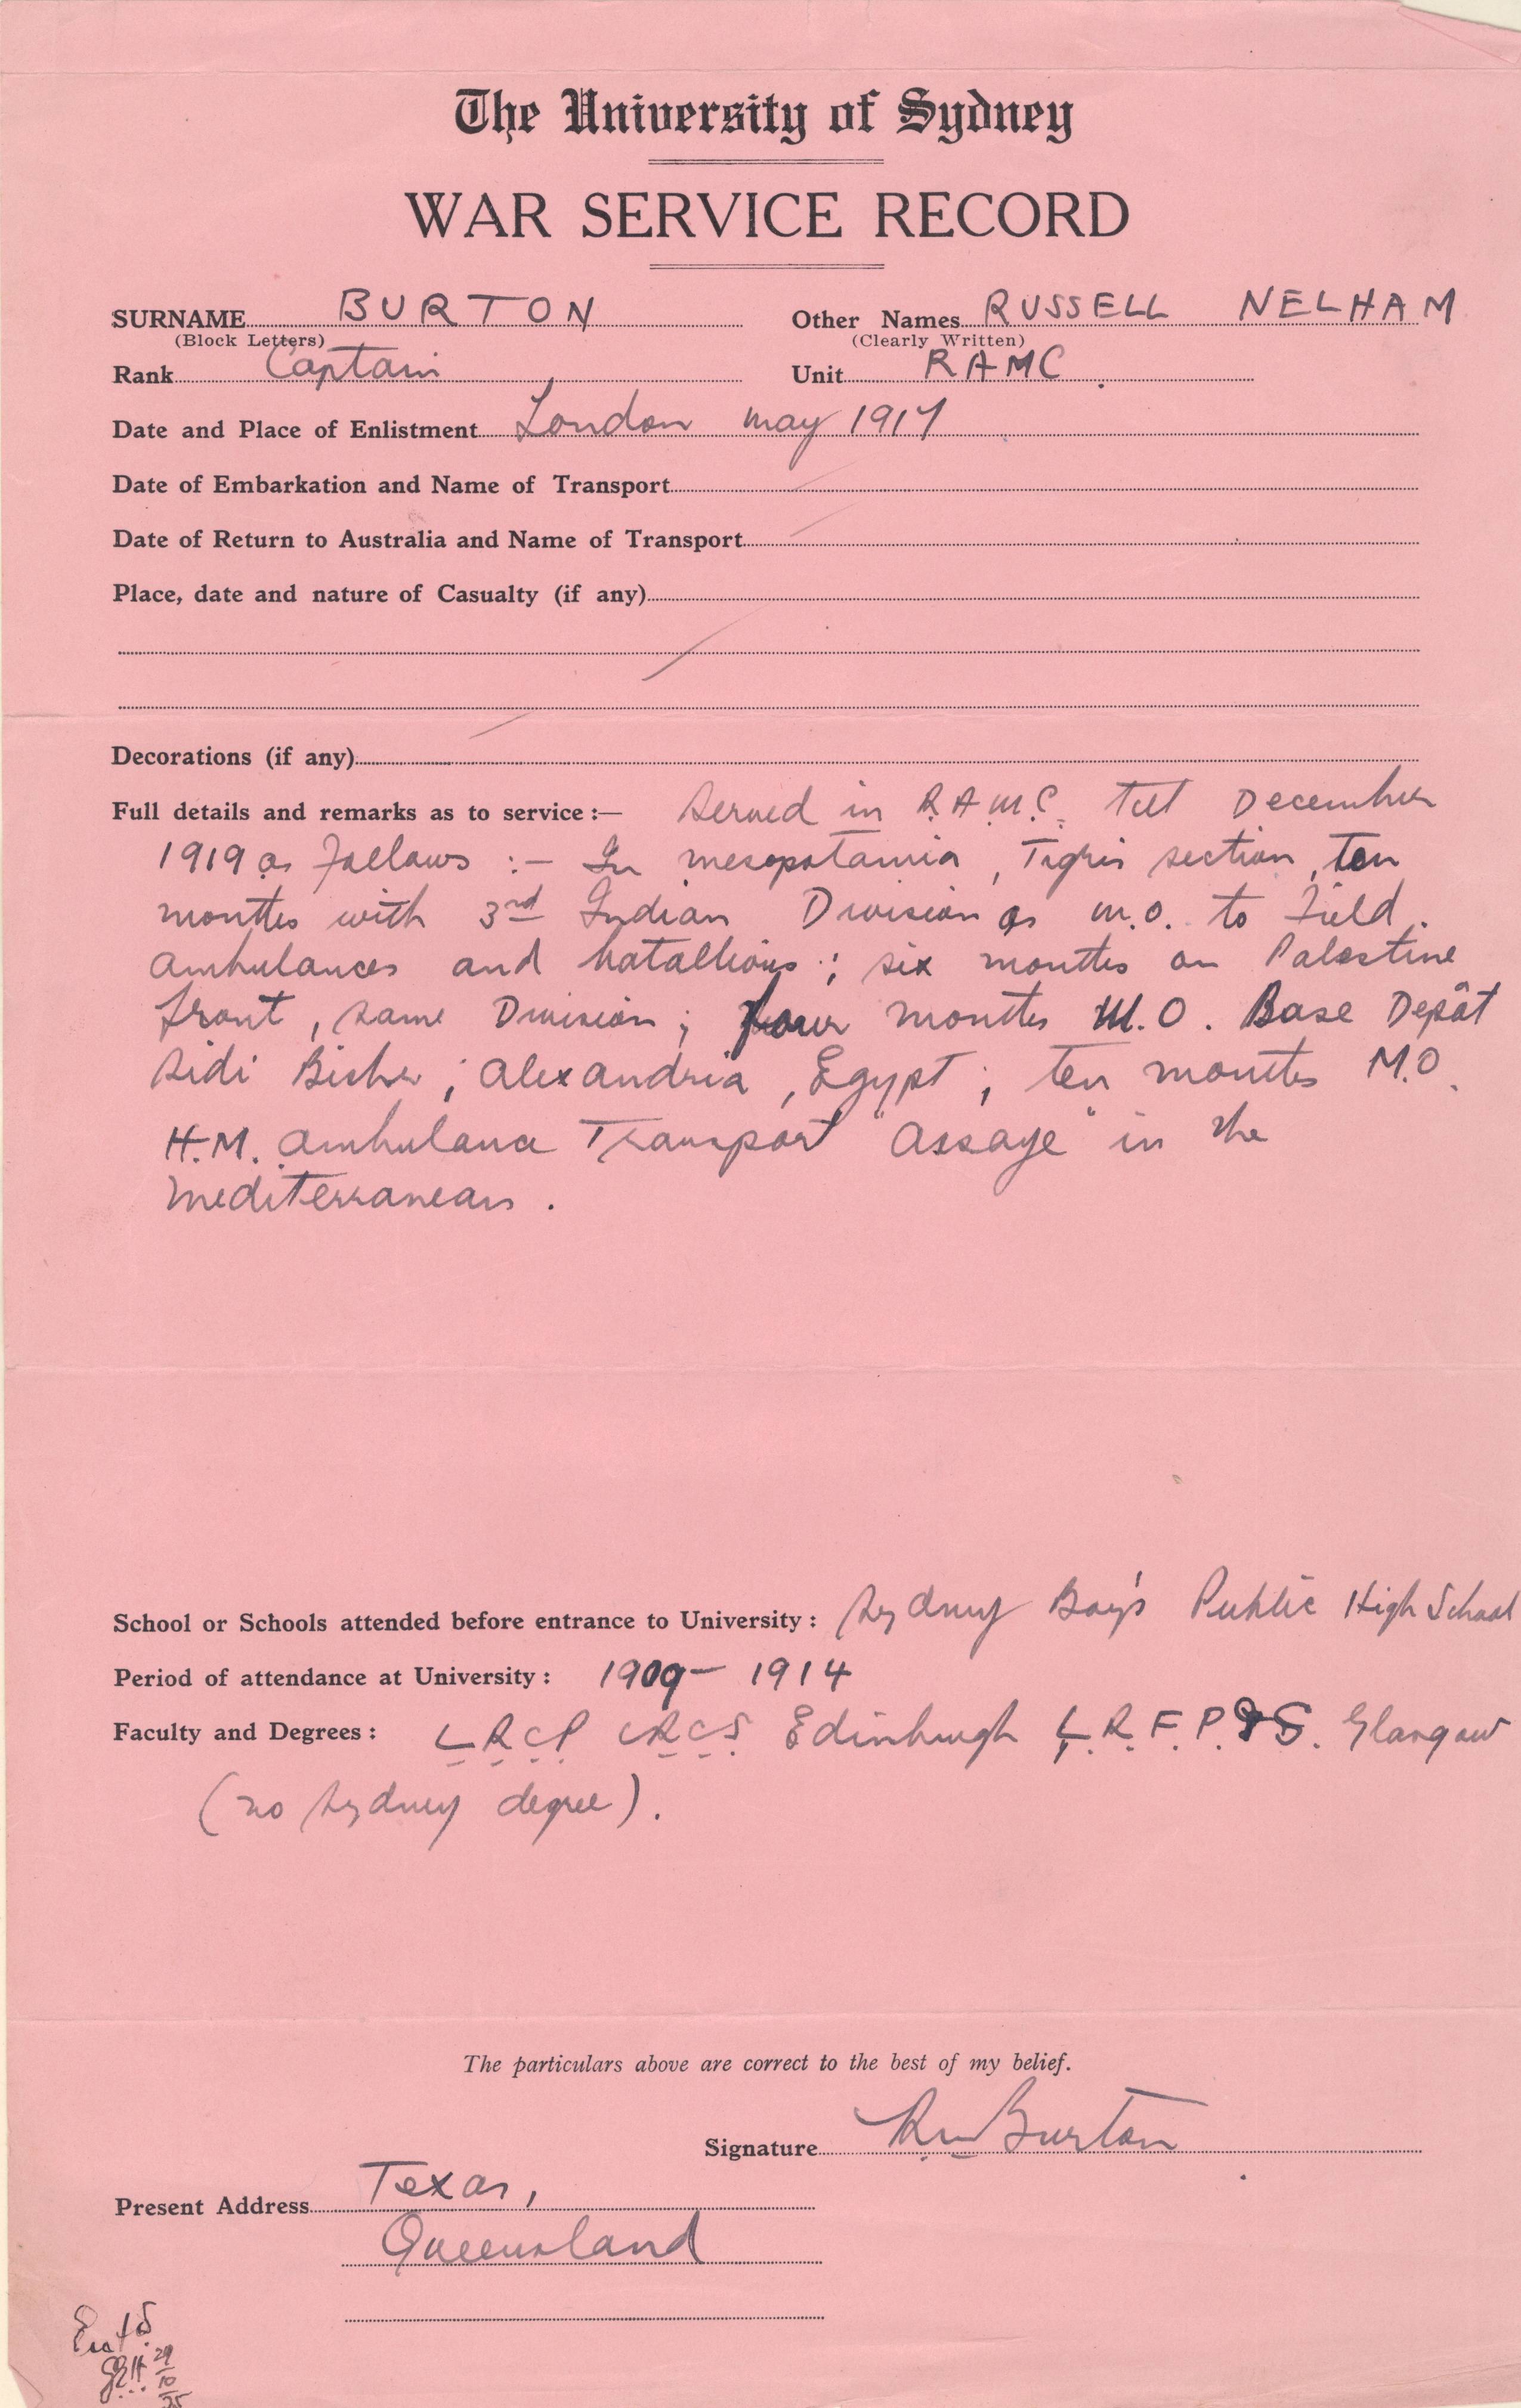 The University of Sydney
WAR SERVICE RECORD
SURNAME BURTON Other Names RUSSELL NELHAM
(Block Letters) (Clearly Written)
Rank Captain Unit RAMC
Date and Place of Enlistment London May 1917
Date of Embarkation and Name of Transport
Date of Return to Australia and Name of Transport
Place, date and nature of Casualty (if any)
Decorations (if any)
Full details and remarks as to service :— Served in R.A.M.C. till December
1919 as follows :- In mesopotamia, Tigris section, ten
months with 3rd Indian Division as M.O. to Field
ambulances and batallions ; six months on Palestine
front, same Division ; four months M.O. Base Depôt
Sidi Bishr ; Alexandria, Egypt ; ten months M.O.
H.M. Ambulance Transport "Assaye" in the
Mediterranean.
School or Schools attended before entrance to University : Sydney Boy's Public High School
Period of attendance at University : 1909 - 1914
Faculty and Degrees : L.R.C.P. L.R.C.S. Edinburgh L.R.F.P.&S. Glasgow
(no Sydney degree).
The particulars above are correct to the best of my belief.
Signature RN Burton
Present Address Texas,
Queensland
29
10